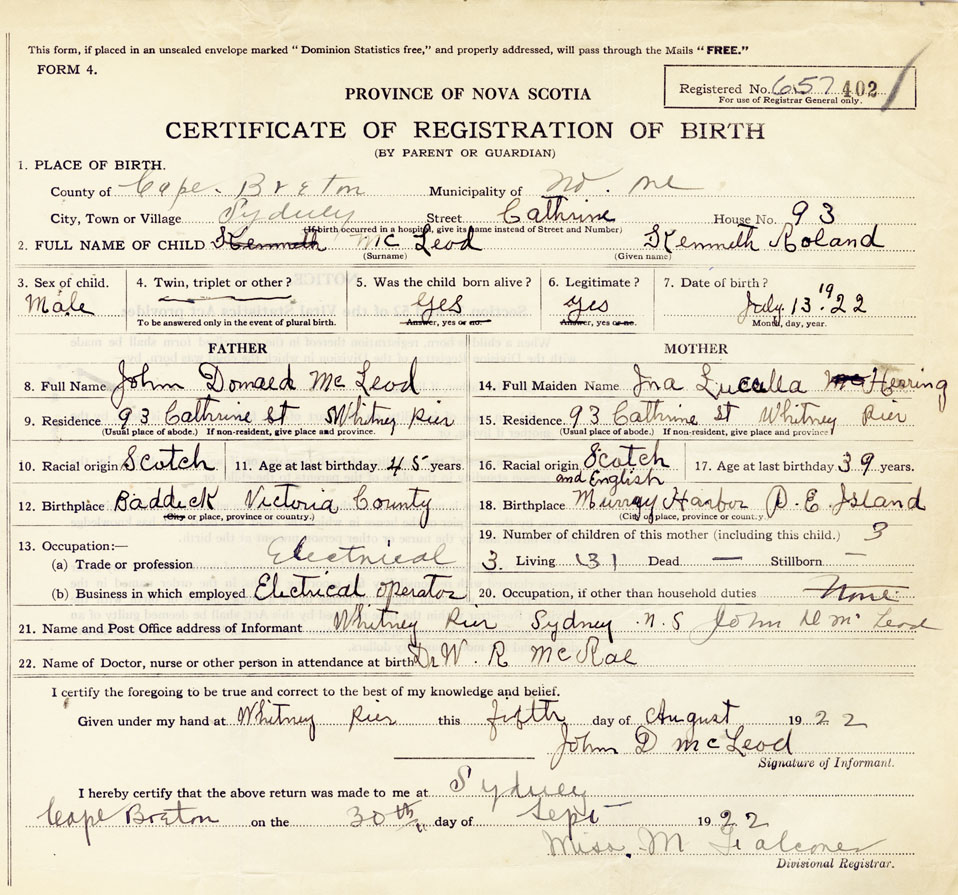 This form, if placed in an unsealed envelope marked "Dominion Statistics free," and properly addressed, will pass through the Mails "FREE."
FORM 4.
Registered No. 657 402
For use of Registrar General only.
PROVINCE OF NOVA SCOTIA
CERTIFICATE OF REGISTRATION OF BIRTH
(BY PARENT OR GUARDIAN)
1. PLACE OF BIRTH.
County of Cape. Breton Municipality of No. one
City, Town or Village Sydney Street Cathrine House No. 93
(If birth occurred in a hospital, give its name instead of Street and Number)
2. FULL NAME OF CHILD Kenneth Mc Leod Kenneth Roland
(Surname) (Given name)
3. Sex of child. 4. Twin, triplet or other? 5. Was the child born alive? 6. Legitimate? 7. Date of birth?
Male Yes yes July. 13 1922
To be answered only in the event of plural birth. Answer, yes or no. Answer, yes or no. Month, day, year.
FATHER MOTHER
8. Full Name John Donaed Mc Leod 14. Full Maiden Name Ina Luculla Mc Hearing
9. Residence 93 Cathrine St Whitney Pier 15. Residence 93 Cathrine St Whitney Pier
(Usual place of abode.) If non-resident, give place and province. (Usual place of abode.) If non-resident, give place and province
10. Racial origin Scotch 11. Age at last birthday 45 years. 16. Racial origin Scotch and English 17. Age at last birthday 39 years.
12. Birthplace Baddeck Victoria County 18. Birthplace Murray Harbor P. E. Island
(City or place, province or country.) (City or place, province or country.)
13. Occupation:— 19. Number of children of this mother (including this child.) 3
(a) Trade or profession Electrical 3. Living 3 Dead — Stillborn —
(b) Business in which employed Electrical operator 20. Occupation, if other than household duties None
21. Name and Post Office address of Informant Whitney Pier Sydney N.S John D Mc Leod
22. Name of Doctor, nurse or other person in attendance at birth Dr W. R McRae
I certify the foregoing to be true and correct to the best of my knowledge and belief.
Given under my hand at Whitney Pier this fifth day of August 1922
John D McLeod
Signature of Informant.
I hereby certify that the above return was made to me at Sydney
Cape Breton on the 30th day of Sept 1922
Miss. M Falconer
Divisional Registrar.